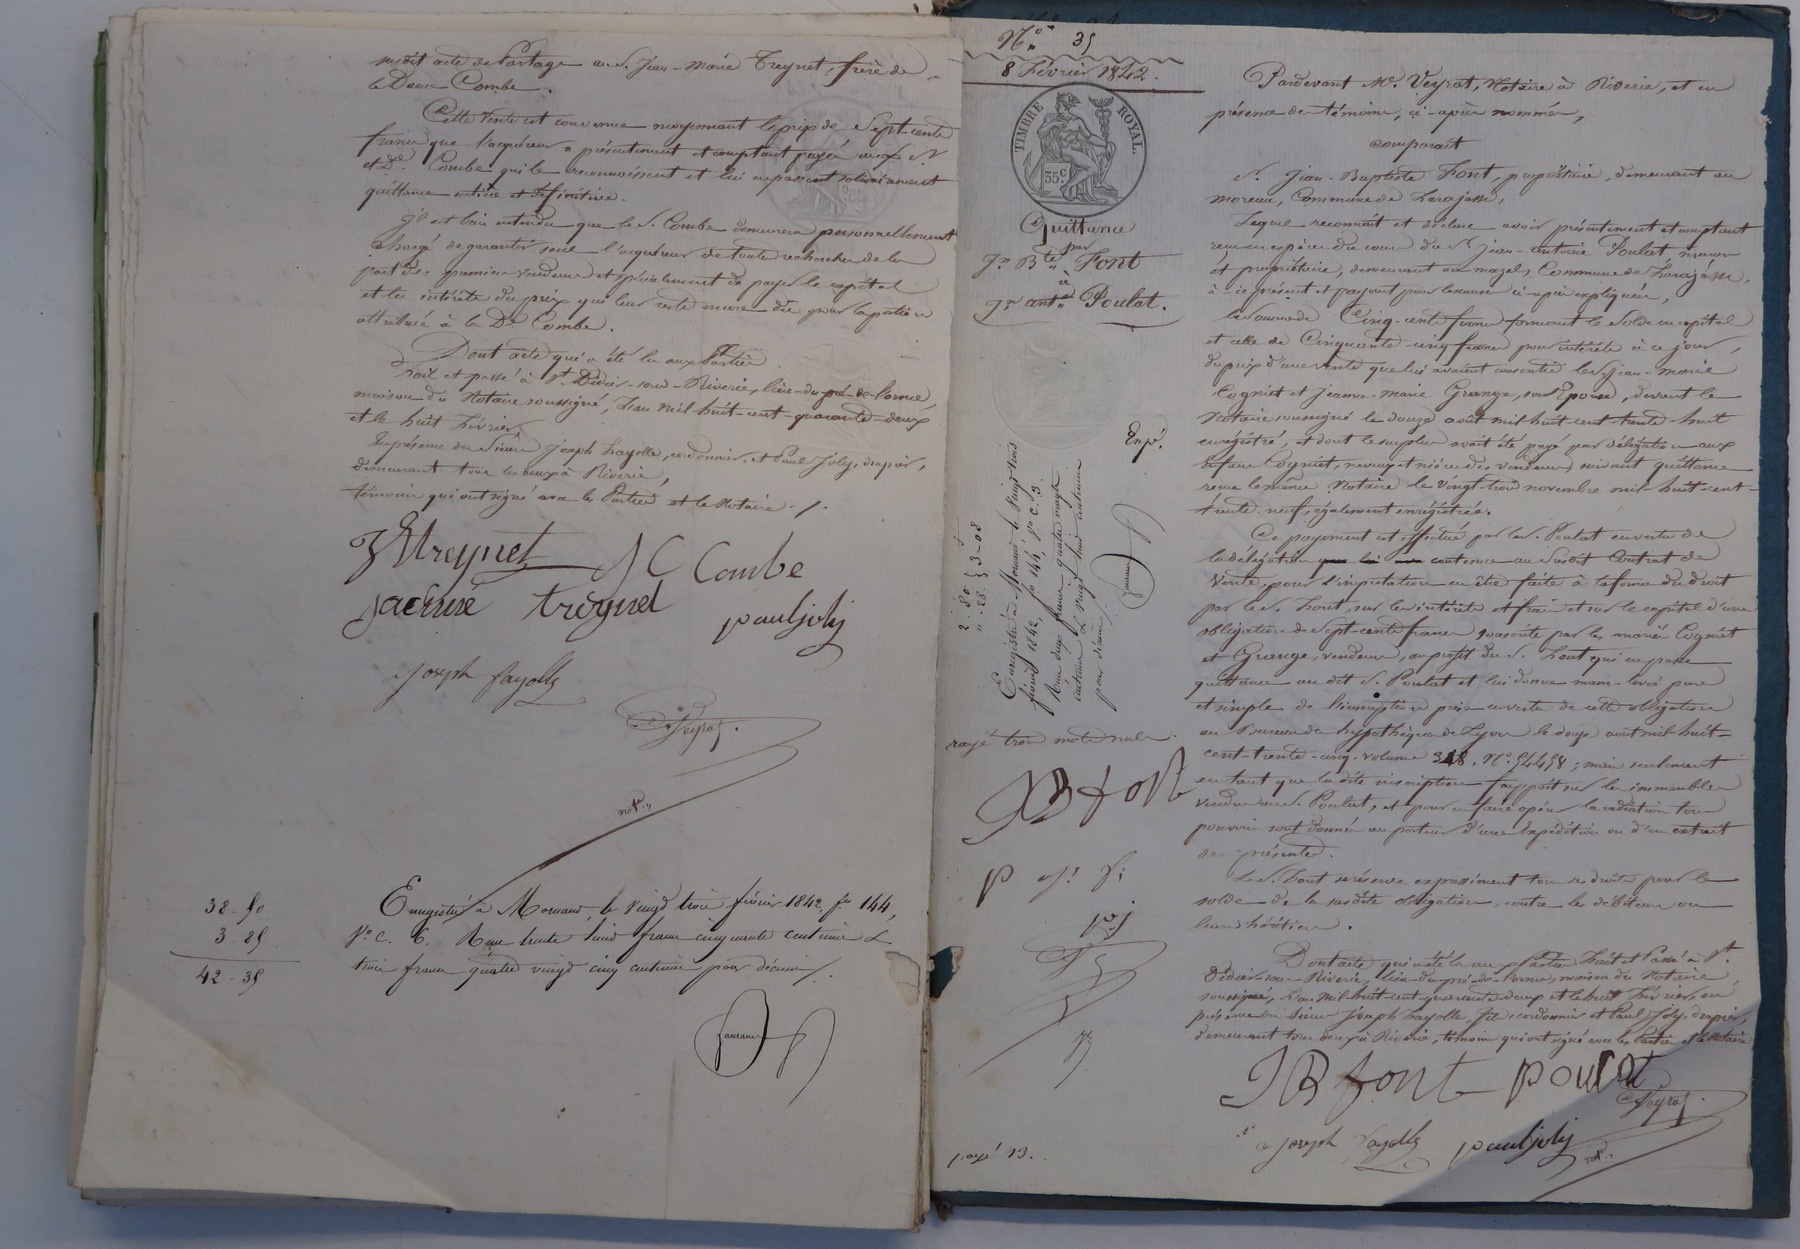 susdit acte de Partage au S. Jean-Marie Treynet, frère de
la Dame Combe.
Cette Vente est convenue moyennant le prix de Sept-cents
francs que l'acquéreur a présentement et comptant payés aux S.
et De. Combe qui le reconnaissent et lui en passent solidairement
quittance entière et définitive.
Il est bien entendu que le S. Combe demeurera personnellement
chargé de garantir seul l'acquéreur de toute recherche de la
part des premiers vendeurs et spécialement de payer le capital
et les intérêts du prix qui leur reste encore dû pour la portion
attribuée à la De Combe.
Dont acte qui a été lu aux Parties
Fait et passé à St. Didier-sous-Riverie, lieu du pré-de-l'orme
maison du Notaire soussigné, L'an mil-huit-cent-quarante-deux
et le huit Février,
En présence des Sieurs Joseph Fayolle, cordonnier, et Paul Joly, drapier,
demeurant tous les deux à Riverie,
témoins qui ont signé avec les Parties et le Notaire ./.
Treynet J C Combe
treynet paul joly
Joseph fayolle
Veyrat
not.
38-50
3-85
42-35
Enregistré à Mornant, le vingt trois février 1842, fo 144,
Vo. C. 6. Reçu trente huit francs cinquante centimes &
trois francs quatre vingt cinq centimes pour décime /.
No. 35
8 Février 1842.
TIMBRE ROYAL.
35c
Quittance
par
Jn. Bte. Font
à
Jn. ante. Poulat.
Expé.
2-80
"-28
3-08
Enregistré à Mornant le vingt trois
février 1842, fo 144, Vo. C. 3.
Reçu deux francs quatre vingts
centimes & vingt huit centimes
pour décime /.
rayé trois mots nuls
JB font
P
payé 13.
Pardevant Me. Veyrat, Notaire à Riverie, et en
présence des témoins, ci-après nommés,
Comparaît
S. Jean-Baptiste Font, propriétaire, demeurant au
moreau, Commune de Larajasse,
Lequel reconnaît et déclare avoir présentement et comptant
reçu en espèces du cours du Sr. Jean-Antoine Poulat, maçon
et propriétaire, demeurant au mazel, Commune de Larajasse,
à-ce présent et payant pour les causes ci-après expliquées,
la somme de Cinq-cents francs formant le solde en capital
et celle de Cinquante-cinq francs pour intérêts à ce jour,
du prix d'une vente que lui avaient consentie les Jean-Marie
Cogniet et Jeanne-Marie Grange, son Epouse, devant le
Notaire soussigné le douze août mil-huit-cent-trente-huit
enregistré, et dont le surplus avait été payé par délégation aux
Cogniet, neveux et nièces des vendeurs, suivant quittance
reçue le même Notaire le vingt-trois novembre mil-huit-cent-
trente-neuf, également enregistrée.
Ce payement est effectué par le S. Poulat en vertu de
la délégation contenue au susdit Contrat de
Vente, pour l'imputation en être faite à la forme du droit
par le S. Font, sur les intérêts et frais et sur le capital d'une
obligation de Sept-cents francs souscrite par les mariés Cogniet
et Grange, vendeurs, au profit du S. Font qui en passe
quittance au dit S. Poulat et lui donne main-levée pure
et simple de l'inscription prise en vertu de cette obligation
au Bureau des hypothèques de Lyon le douze août mil-huit-
cent-trente-cinq, volume 348, No. 54458; mais seulement
en tant que la dite inscription frappait sur les immeubles
vendus au S. Poulat, et pour en faire opérer la radiation tous
pouvoirs sont donnés au porteur d'une Expédition ou d'un extrait
des présentes.
Le S. Font se réserve expressément tous ses droits pour le
solde de la susdite obligation, contre les débiteurs ou
leurs héritiers.
Dont acte qui a été lu aux Parties Fait et Passé à St.
Didier-sous-Riverie, lieu du pré-de-l'orme, maison du Notaire
soussigné, L'an mil-huit-cent-quarante-deux et le huit Février, en
présence des Sieurs Joseph Fayolle, fils, cordonnier et Paul Joly, drapier,
demeurant tous deux à Riverie, témoins qui ont signé avec les Parties et le Notaire
JB font poulat
Veyrat
Joseph fayolle paul joly
not.